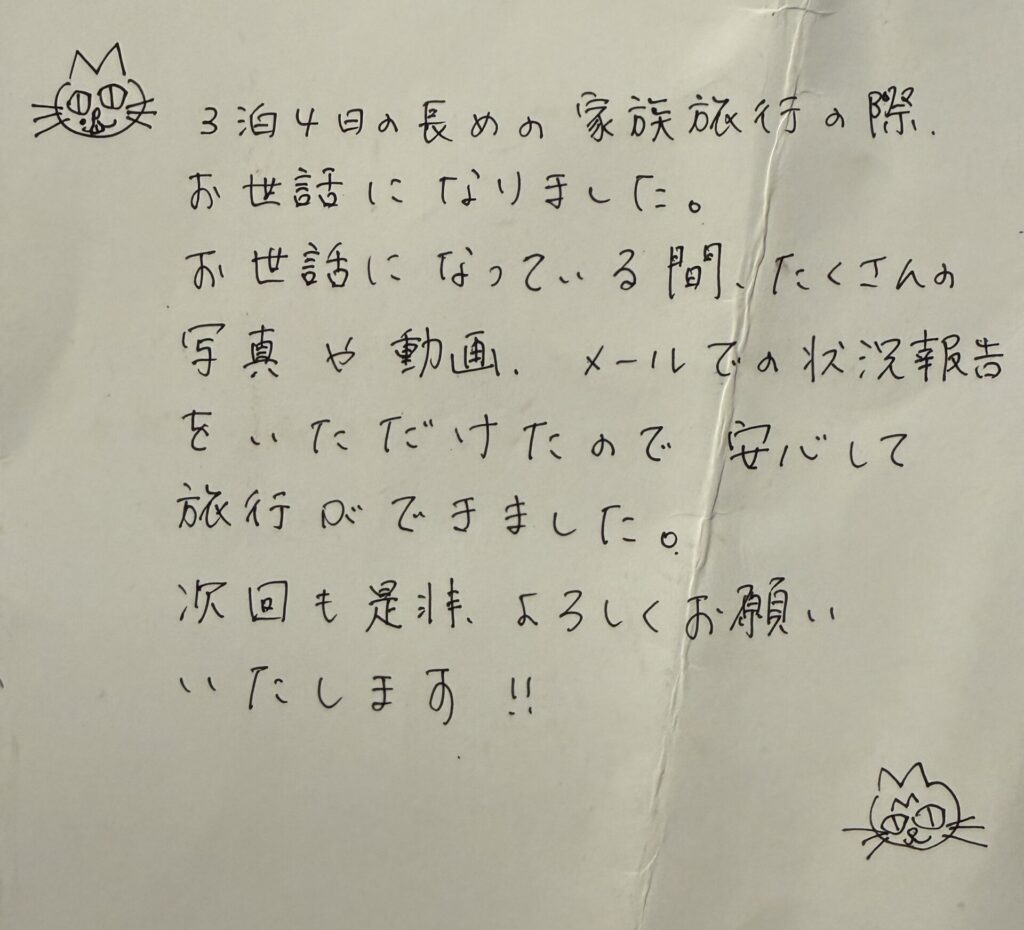 3泊4日の長めの家族旅行の際、
お世話になりました。
お世話になっている間、たくさんの
写真や動画、メールでの状況報告
をいただけたので安心して
旅行ができました。
次回も是非、よろしくお願い
いたします!!